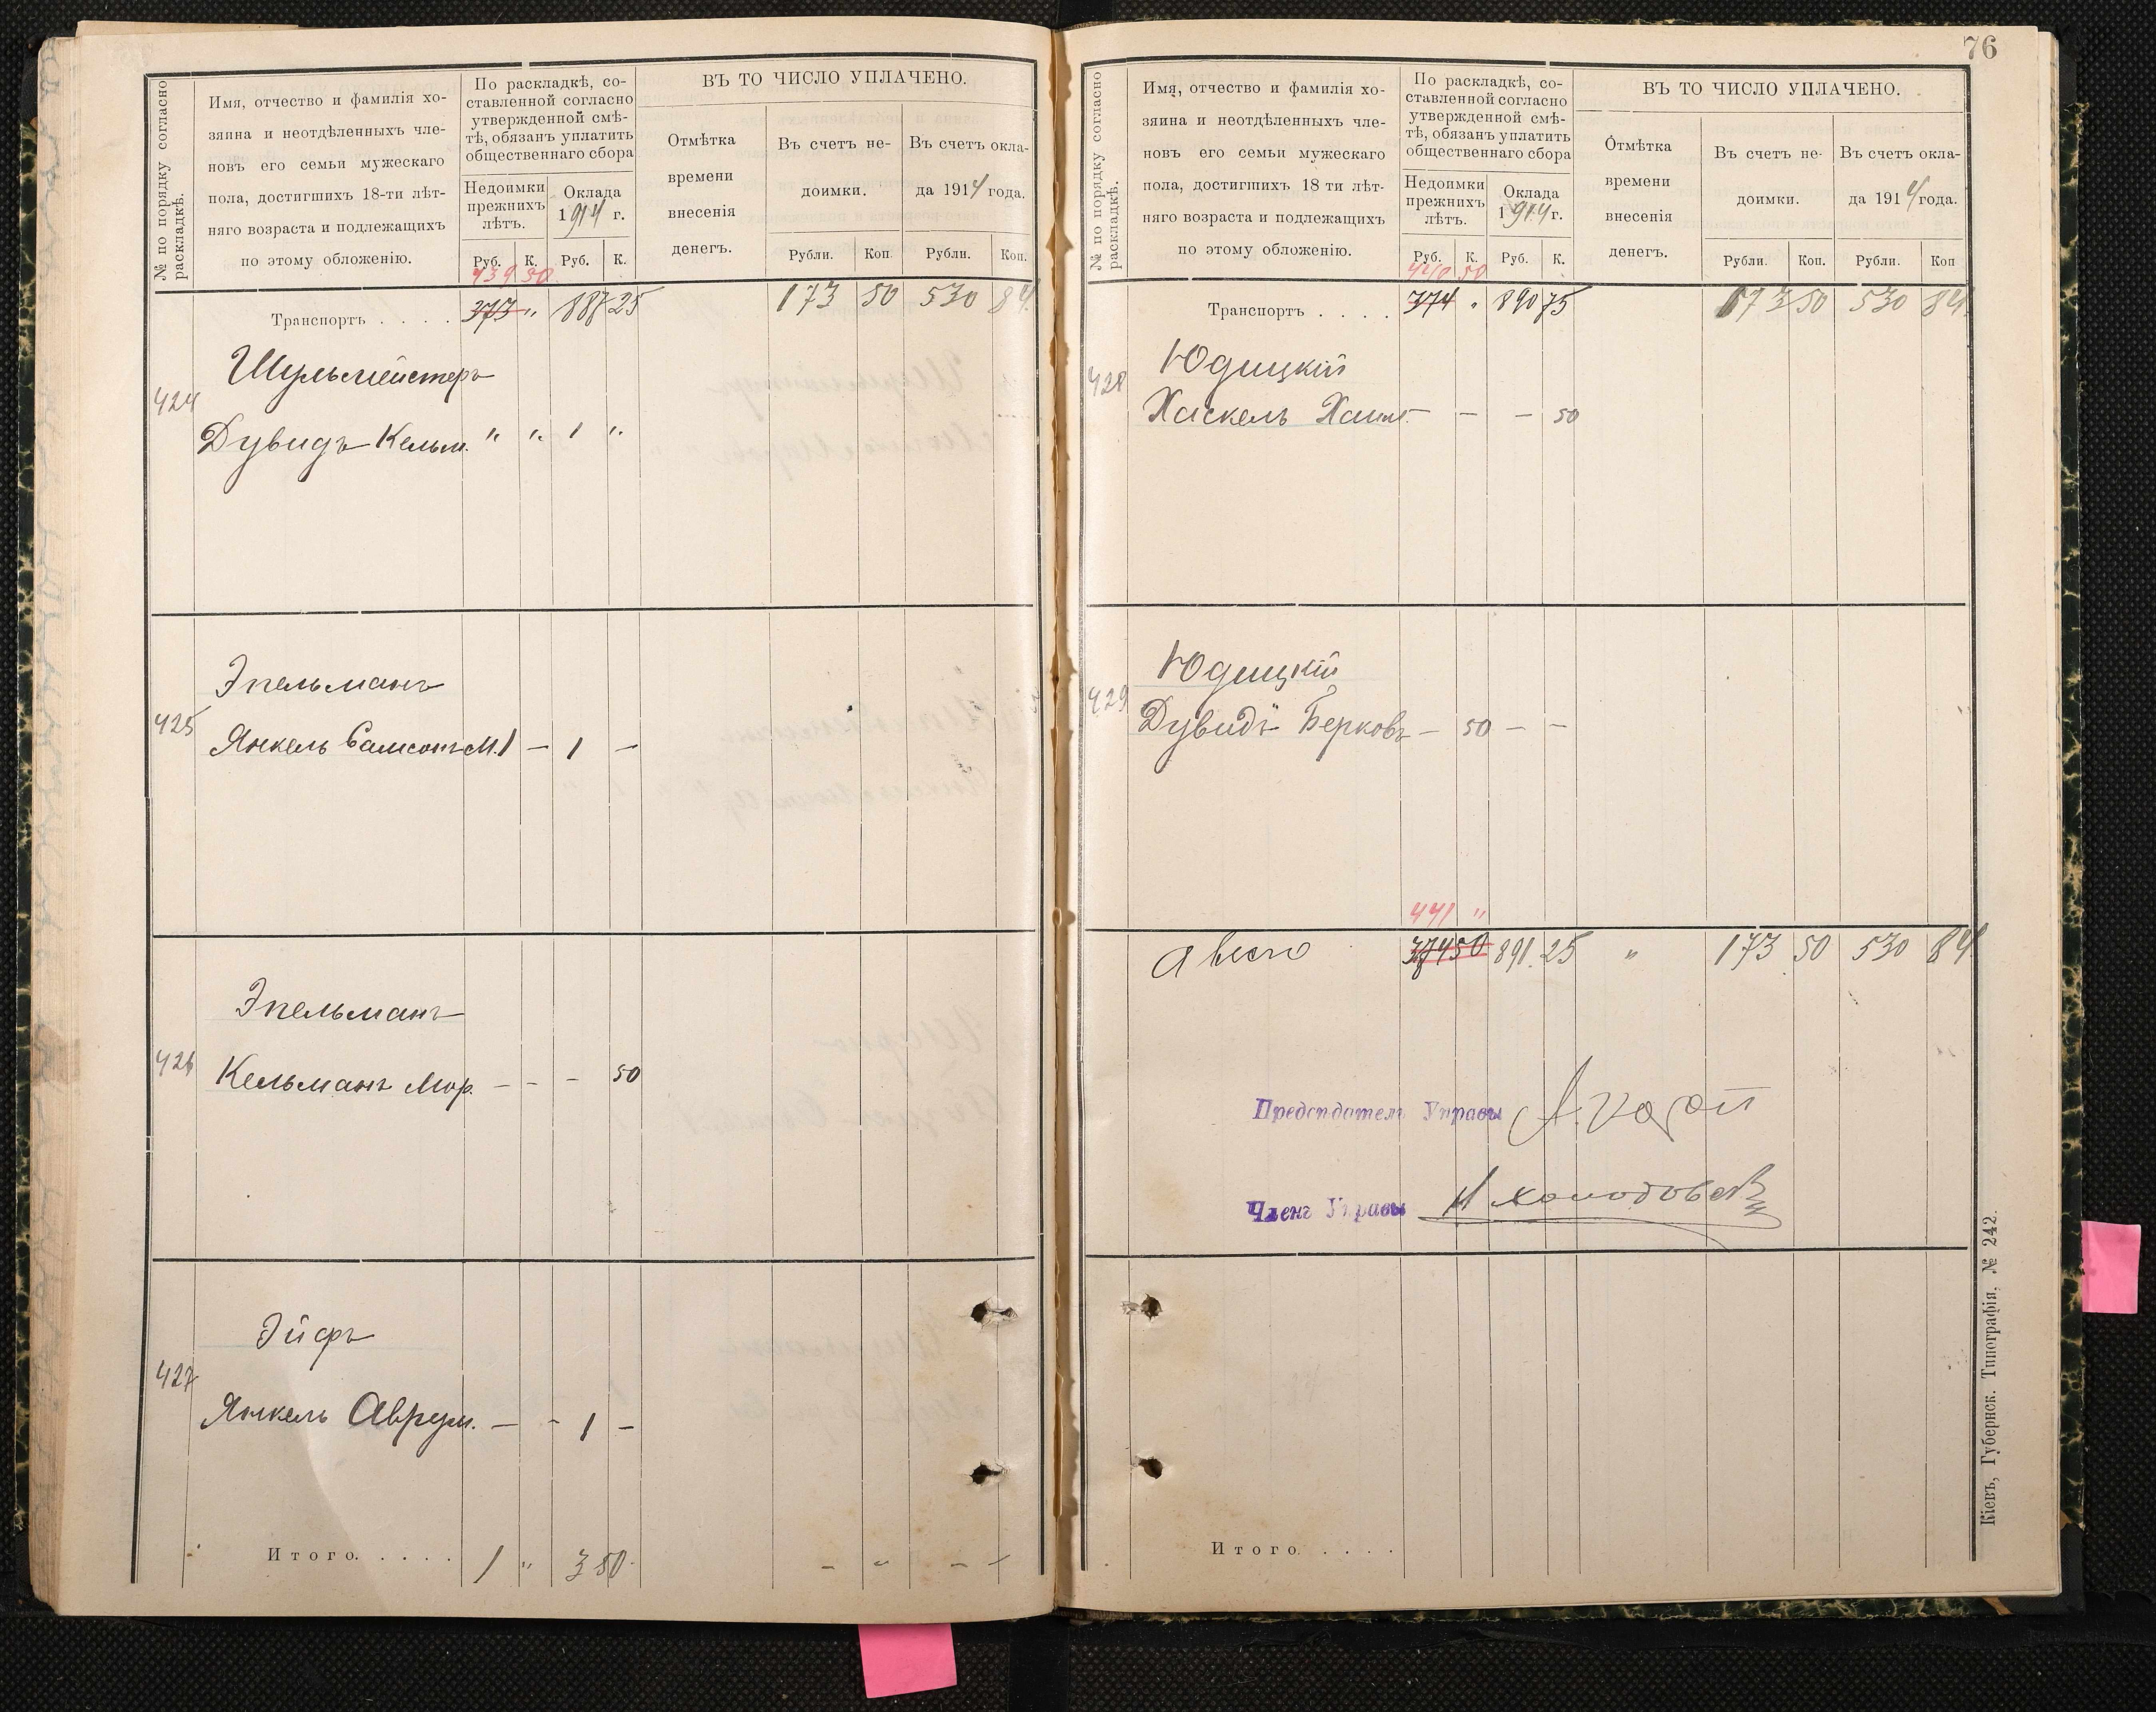 № по порядку согласно
раскладкѣ.
Имя, отчество и фамилія хо-
зяина и неотдѣленныхъ чле-
новъ его семьи мужескаго
пола, достигшихъ 18-ти лѣт-
няго возраста и подлежащихъ
по этому обложенію.
По раскладкѣ, со-
ставленной согласно
утвержденной смѣ-
тѣ, обязанъ уплатить
общественнаго сбора
Недоимки
прежнихъ
лѣтъ.
Оклада
1914 г.
Руб. К. Руб. К.
ВЪ ТО ЧИСЛО УПЛАЧЕНО.
Отмѣтка
времени
внесенія
денегъ.
Въ счетъ не-
доимки.
Въ счетъ окла-
да 1914 года.
Рубли. Коп. Рубли. Коп.
439 50
Транспортъ . . . . 373 " 887 25 173 50 530 84
424
Шульмейстеръ
Дувидъ Кельм. " " 1 "
425
Эпельманъ
Янкель Самсонъ М. 1 — 1 —
426
Эпельманъ
Кельманъ Мор. — — — 50
427
Эйфъ
Янкель Аврум. — - 1 —
Итого. . . . . 1 " 3 50 — " — —
76
№ по порядку согласно
раскладкѣ.
Имя, отчество и фамилія хо-
зяина и неотдѣленныхъ чле-
новъ его семьи мужескаго
пола, достигшихъ 18 ти лѣт-
няго возраста и подлежащихъ
по этому обложенію.
По раскладкѣ, со-
ставленной согласно
утвержденной смѣ-
тѣ, обязанъ уплатить
общественнаго сбора
Недоимки
прежнихъ
лѣтъ.
Оклада
1914 г.
Руб. К. Руб. К.
ВЪ ТО ЧИСЛО УПЛАЧЕНО.
Отмѣтка
времени
внесенія
денегъ.
Въ счетъ не-
доимки.
Въ счетъ окла-
да 1914 года.
Рубли. Коп. Рубли. Коп
440 50
Транспортъ . . . . 374 " 890 75 173 50 530 84
428
Юдицкій
Хаскель Хаим. — — — 50
429
Юдицкій
Дувидъ Берковъ — 50 — —
441 "
А всего 374 50 891 25 " 173 50 530 84
Предсѣдатель Управы
Членъ Управы
Итого. . . . .
Кіевъ, Губернск. Типографія, № 242.